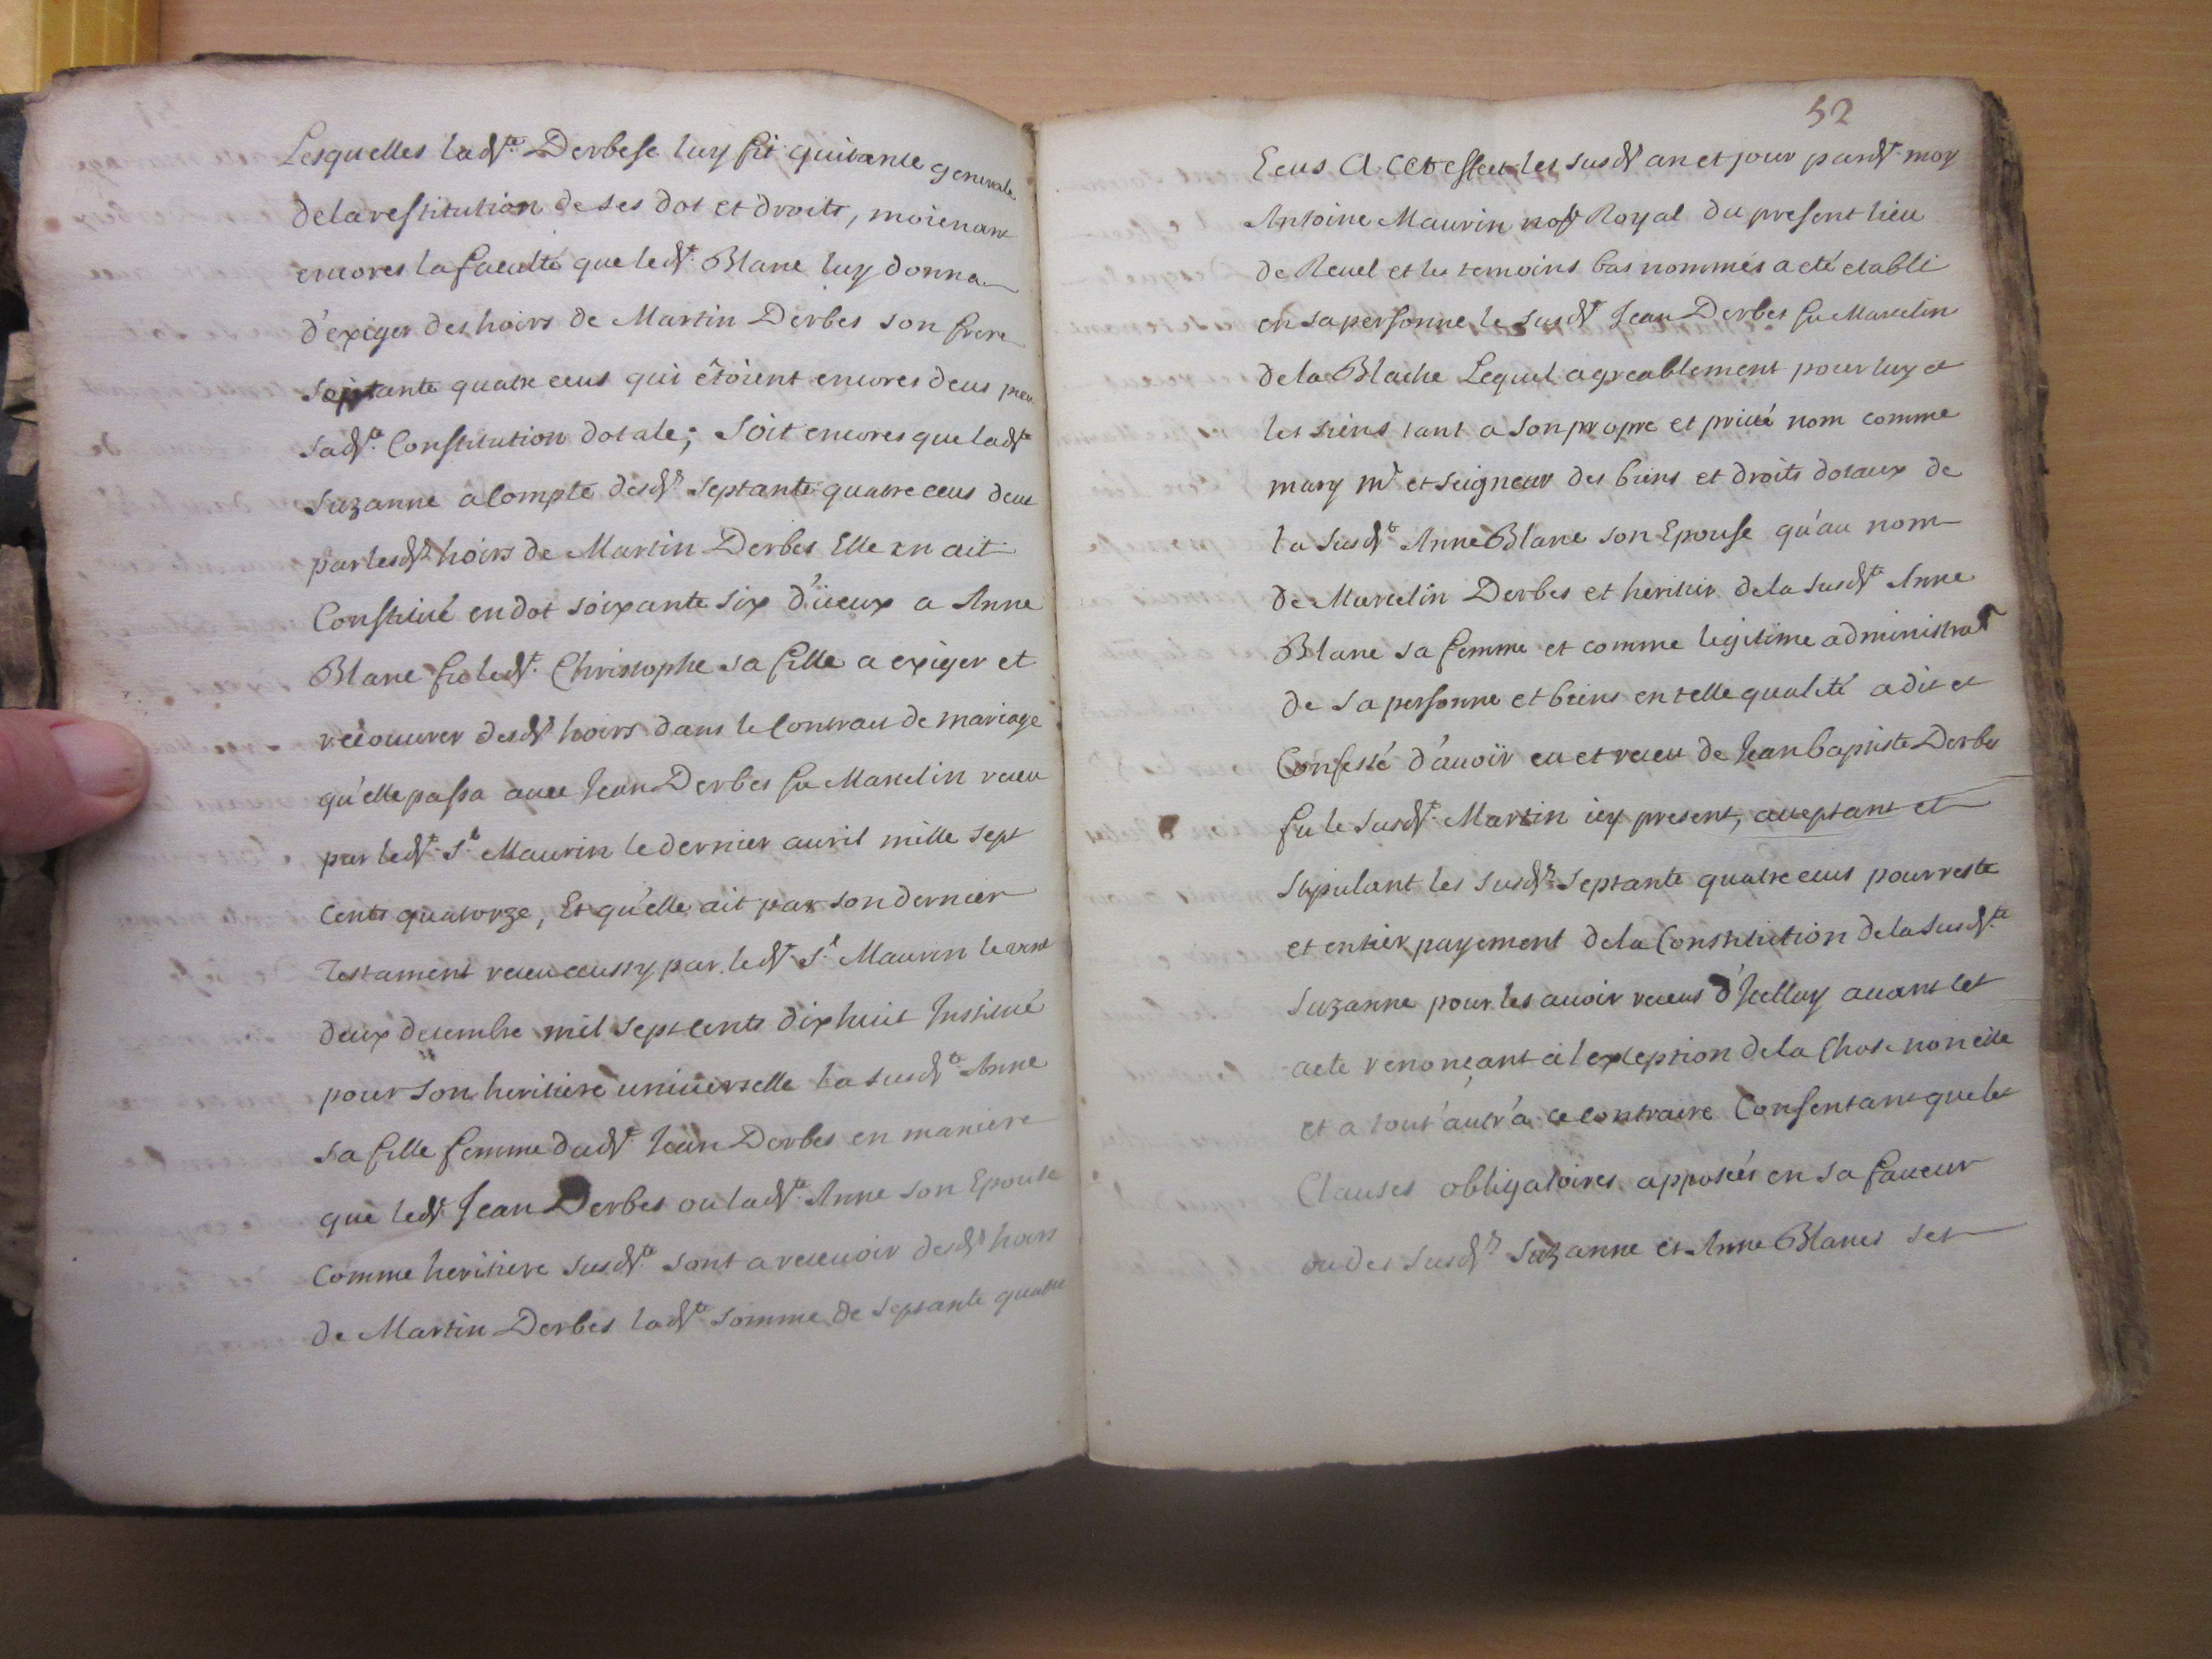 Lesquelles lad.te Derbese luy fit quitance generale
de la restitution de ses dot et droits, moienant
encores la faculté que led.t Blanc luy donna
d'exiger des hoirs de Martin Derbes son frere
septante quatre ecus qui êtoient encores deus pour
sad.te Constitution dotale; Soit encores que lad.te
Suzanne a Compte desd.ts septante quatre ecus deus
par lesd.ts hoirs de Martin Derbes Elle en ait
Constitué en dot soixante six d'iceux a Anne
Blanc fu led.t Christophe sa fille a exiger et
recouurer desd.ts hoirs dans le Contract de mariage
qu'elle passa auec Jean Derbes fu Marcelin receu
par led.t S.r Maurin le dernier auril mille sept
Cents quatorze, Et qu'elle ait par son dernier
Testament receu aussy par led.t S.r Maurin le vint
deux decembre mil sept cents dix huit Institué
pour son heritiere uniuerselle la susd.te Anne
sa fille femme dud.t Jean Derbes en maniere
que led.t Jean Derbes ou lad.te Anne son Epouse
Comme heritiere susd.te sont a receuoir desd.ts hoirs
de Martin Derbes lad.te somme de septante quatre
52
Ecus A cet effect les susd.ts an et jour pard.t moy
Antoine Maurin no.re Royal du present lieu
de Reuel et les temoins bas nommés a eté etabli
en sa personne le susd.t Jean Derbes fu Marcelin
de la Blache Lequel agreablement pour luy et
les siens tant a son propre et priué nom comme
mary m.e et seigneur des biens et droits dotaux de
la susd.te Anne Blanc son Epouse qu'au nom
de Marcelin Derbes et heritier de la susd.te Anne
Blanc sa femme et comme legitime administrat.r
de sa personne et biens en telle qualité a dit et
Confessé d'auoir eu et receu de Jean baptiste Derbes
fu le susd.t Martin icy present, acceptant et
stipulant les susd.ts septante quatre ecus pour reste
et entier payement de la Constitution de la susd.te
Suzanne pour les auoir receus d'Jcelluy auant cet
acte renonçant a l'exception de la Chose non eüe
et a tout autr'a ce contraire Consentant que les
Clauses obligatoires apposées en sa faueur
ou des susd.tes Suzanne et Anne Blancs ses